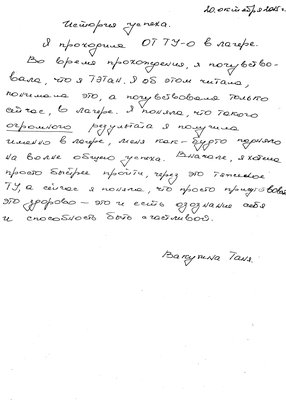 20 октября 2015 г.
История успеха.
Я проходила ОТ ТУ-0 в лагере.
Во время прохождения, я почувство-
вала, что я Тэтан. Я об этом читала,
понимала это, а почувствовала только
сейчас, в лагере. Я поняла, что такого
огромного результата я получила
именно в лагере, меня как-будто подняло
на волне общего успеха. Вначале, я хотела
просто быстрее пройти, через это тяжелое
ТУ, а сейчас я поняла, что просто
это здорово – это и есть осознание себя
и способность быть счастливой.
Вакулина Таня.